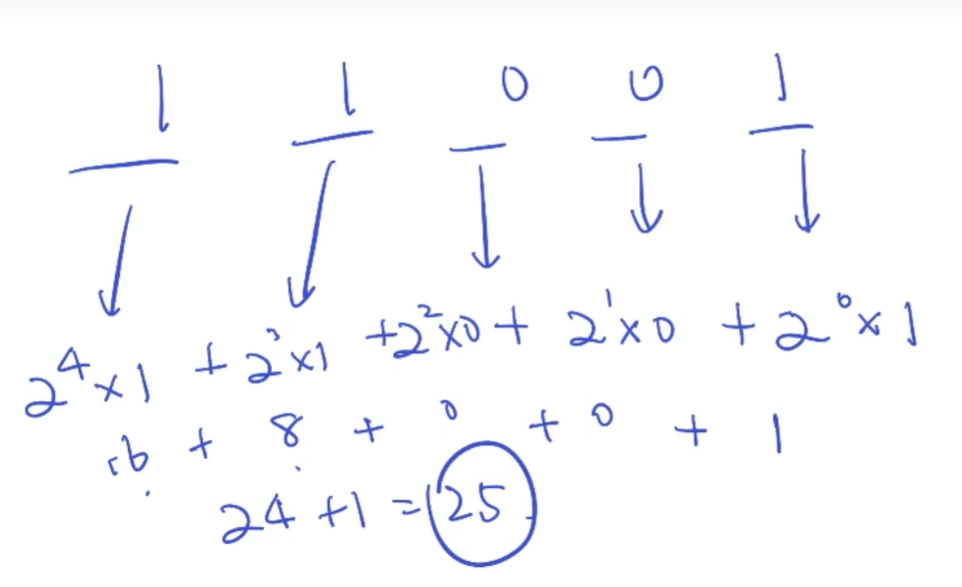 1 1 0 0 1
2⁴x1 + 2³x1 +2²x0 + 2¹x0 + 2⁰x1
16 + 8 + 0 + 0 + 1
24 +1 = 25